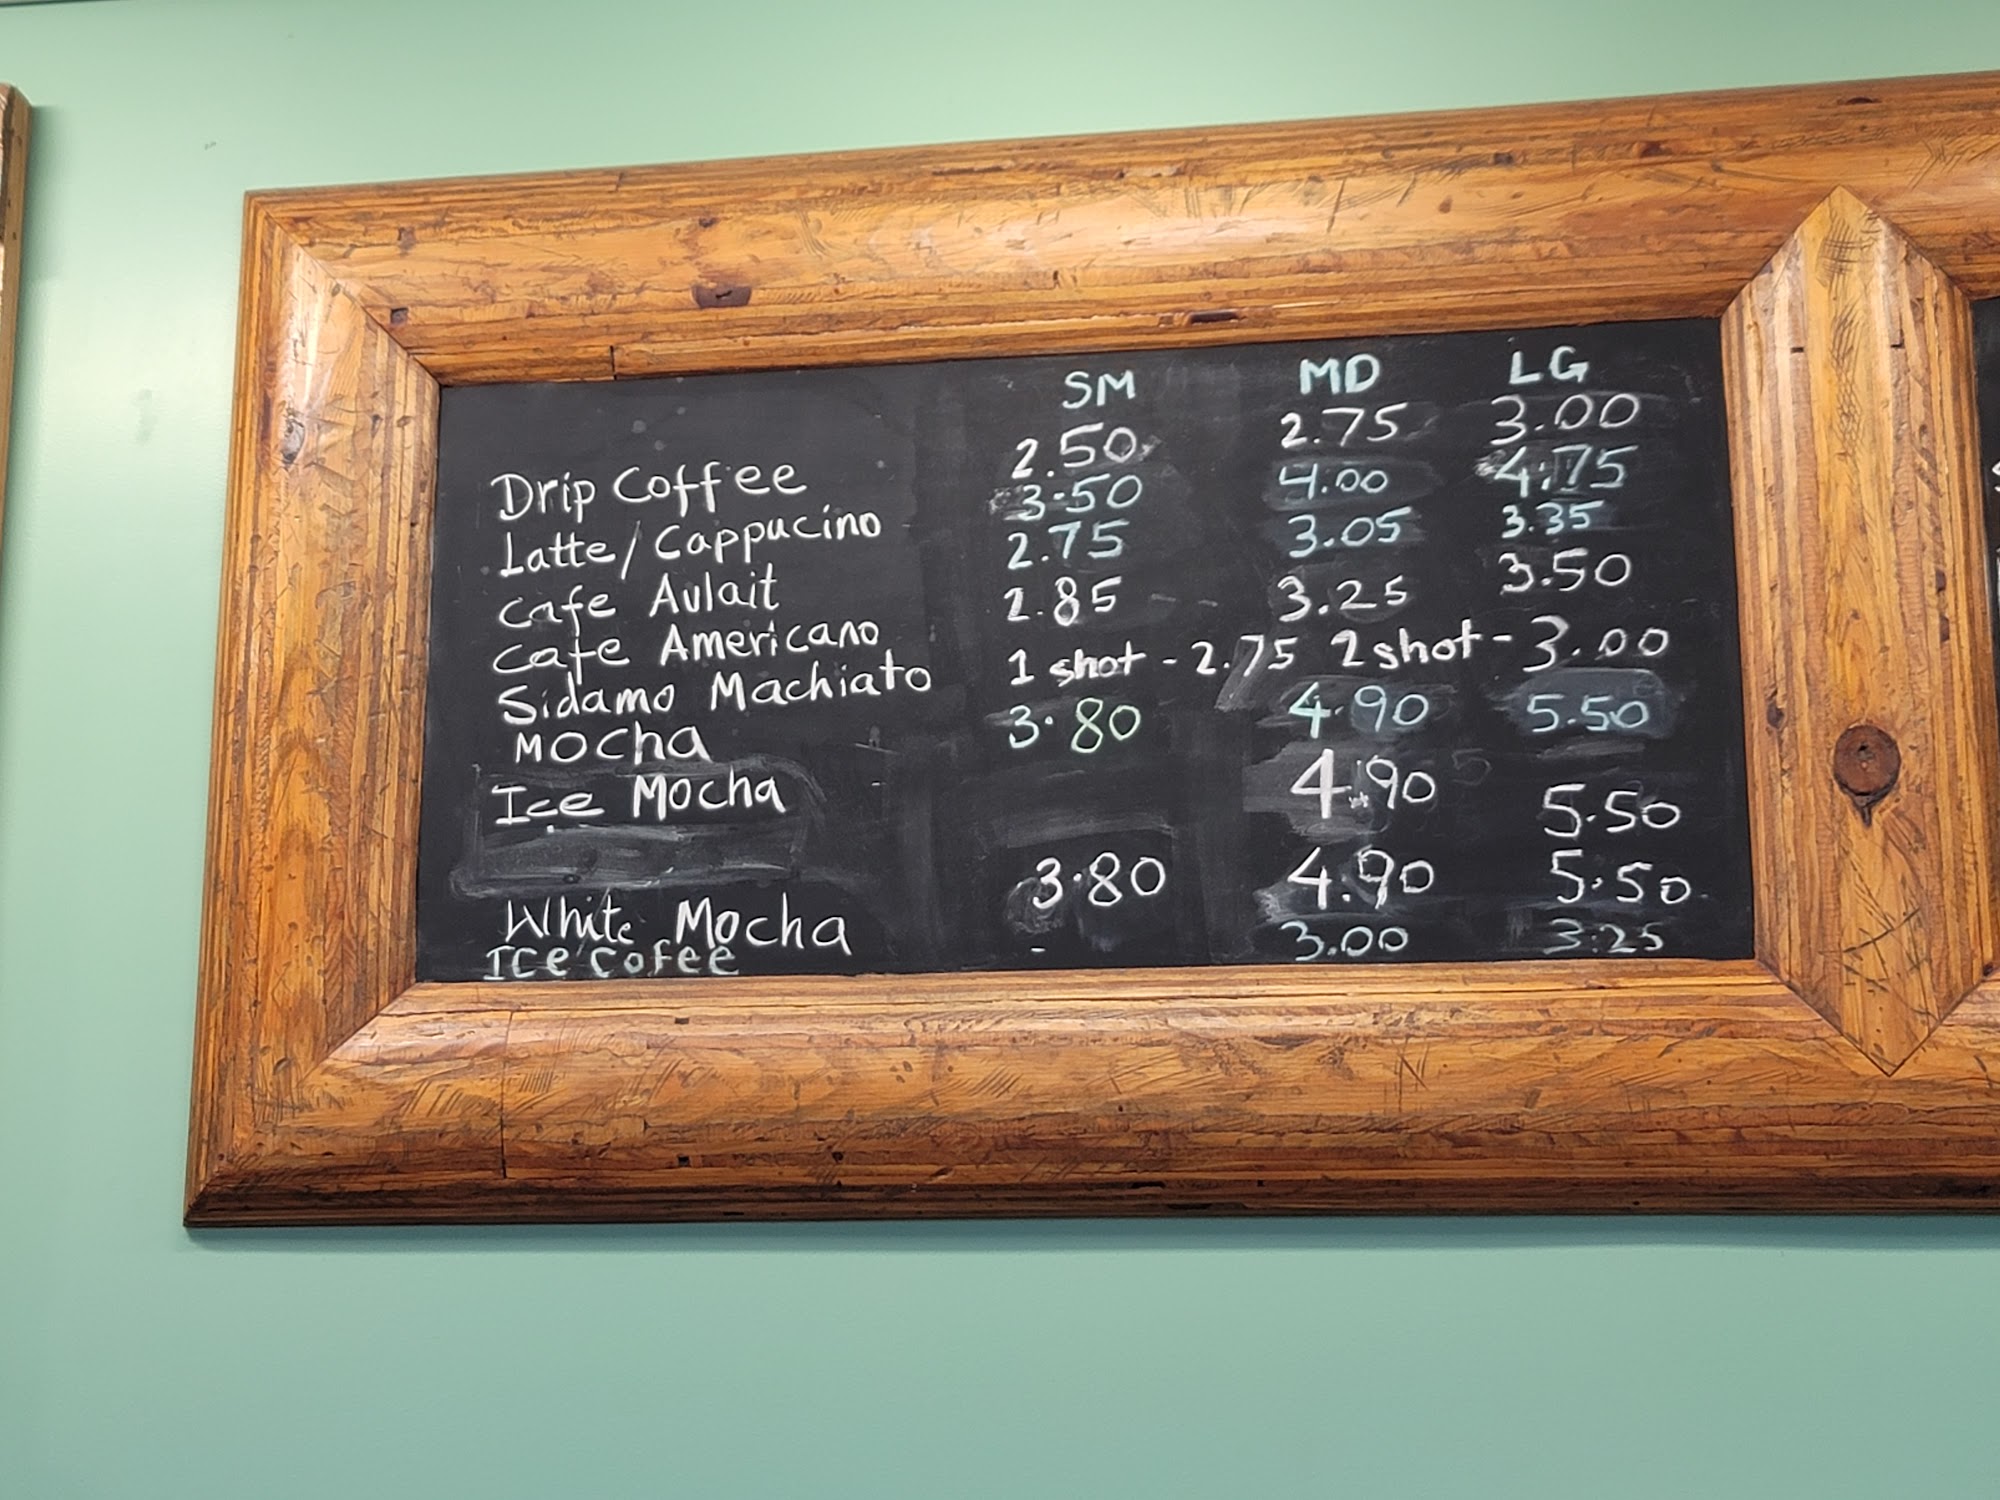 SM MD LG
Drip Coffee 2.50 2.75 3.00
Latte/Cappucino 3.50 4.00 4.75
Cafe Aulait 2.75 3.05 3.35
Cafe Americano 2.85 3.25 3.50
Sidamo Machiato 1 shot - 2.75 2 shot - 3.00
Mocha 3.80 4.90 5.50
Ice Mocha 4.90 5.50
White Mocha 3.80 4.90 5.50
Ice Cofee - 3.00 3.25